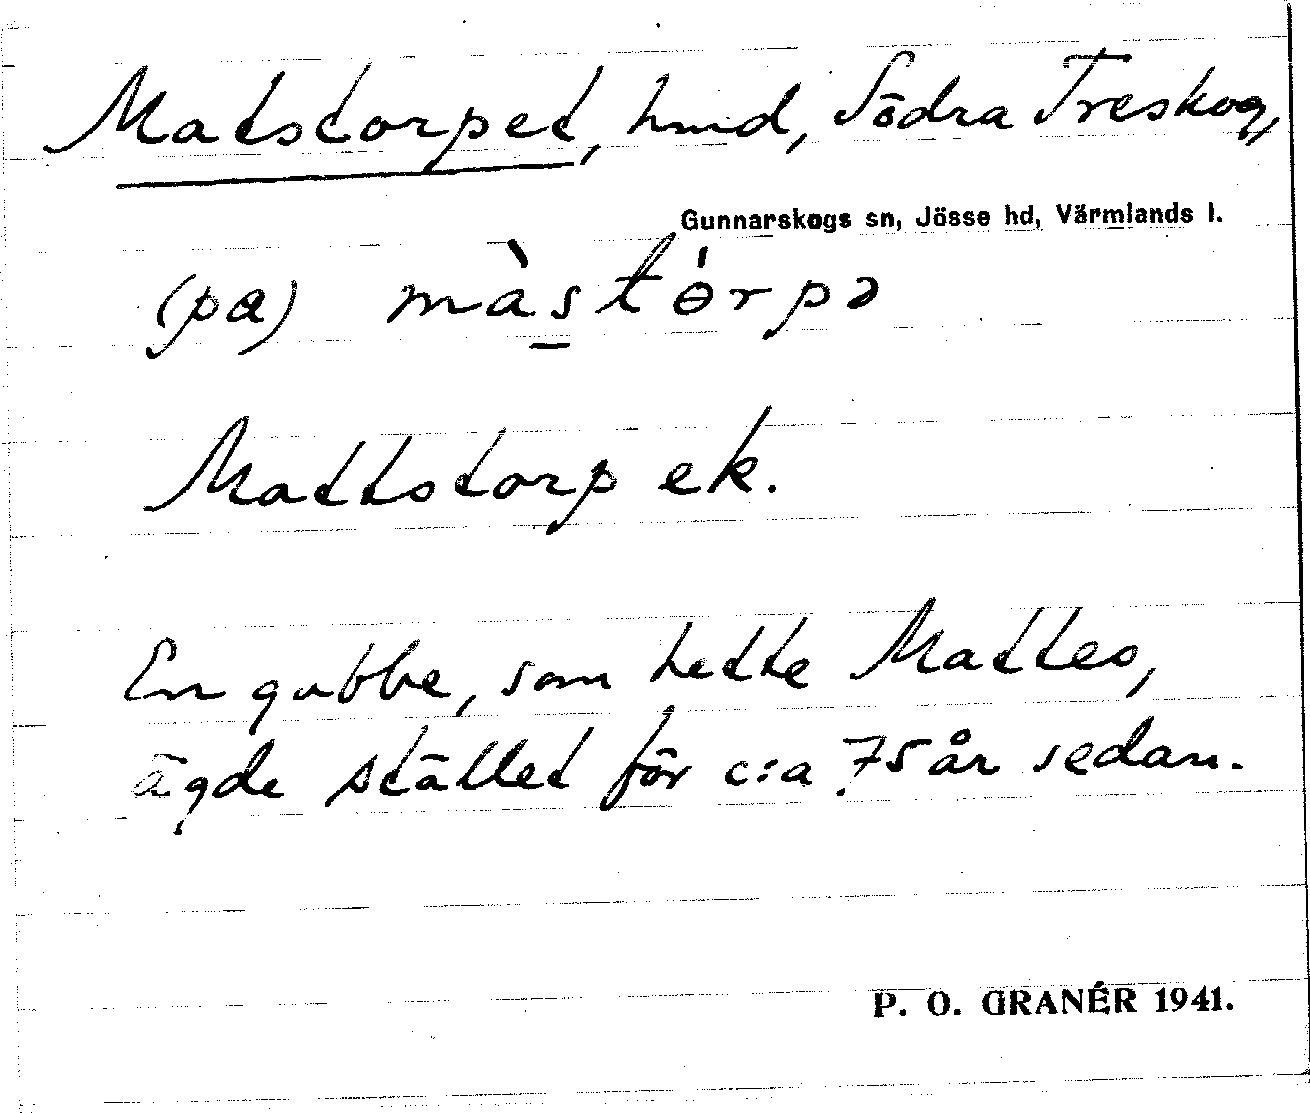 Matstorpet, hmd, Södra Treskog,
Gunnarskogs sn, Jösse hd, Värmlands l.
(pa) màstɵ́rpə
Mattstorp ek.
En gubbe, som hette Mattes,
ägde stället för c:a 75 år sedan.
P. O. GRANÉR 1941.